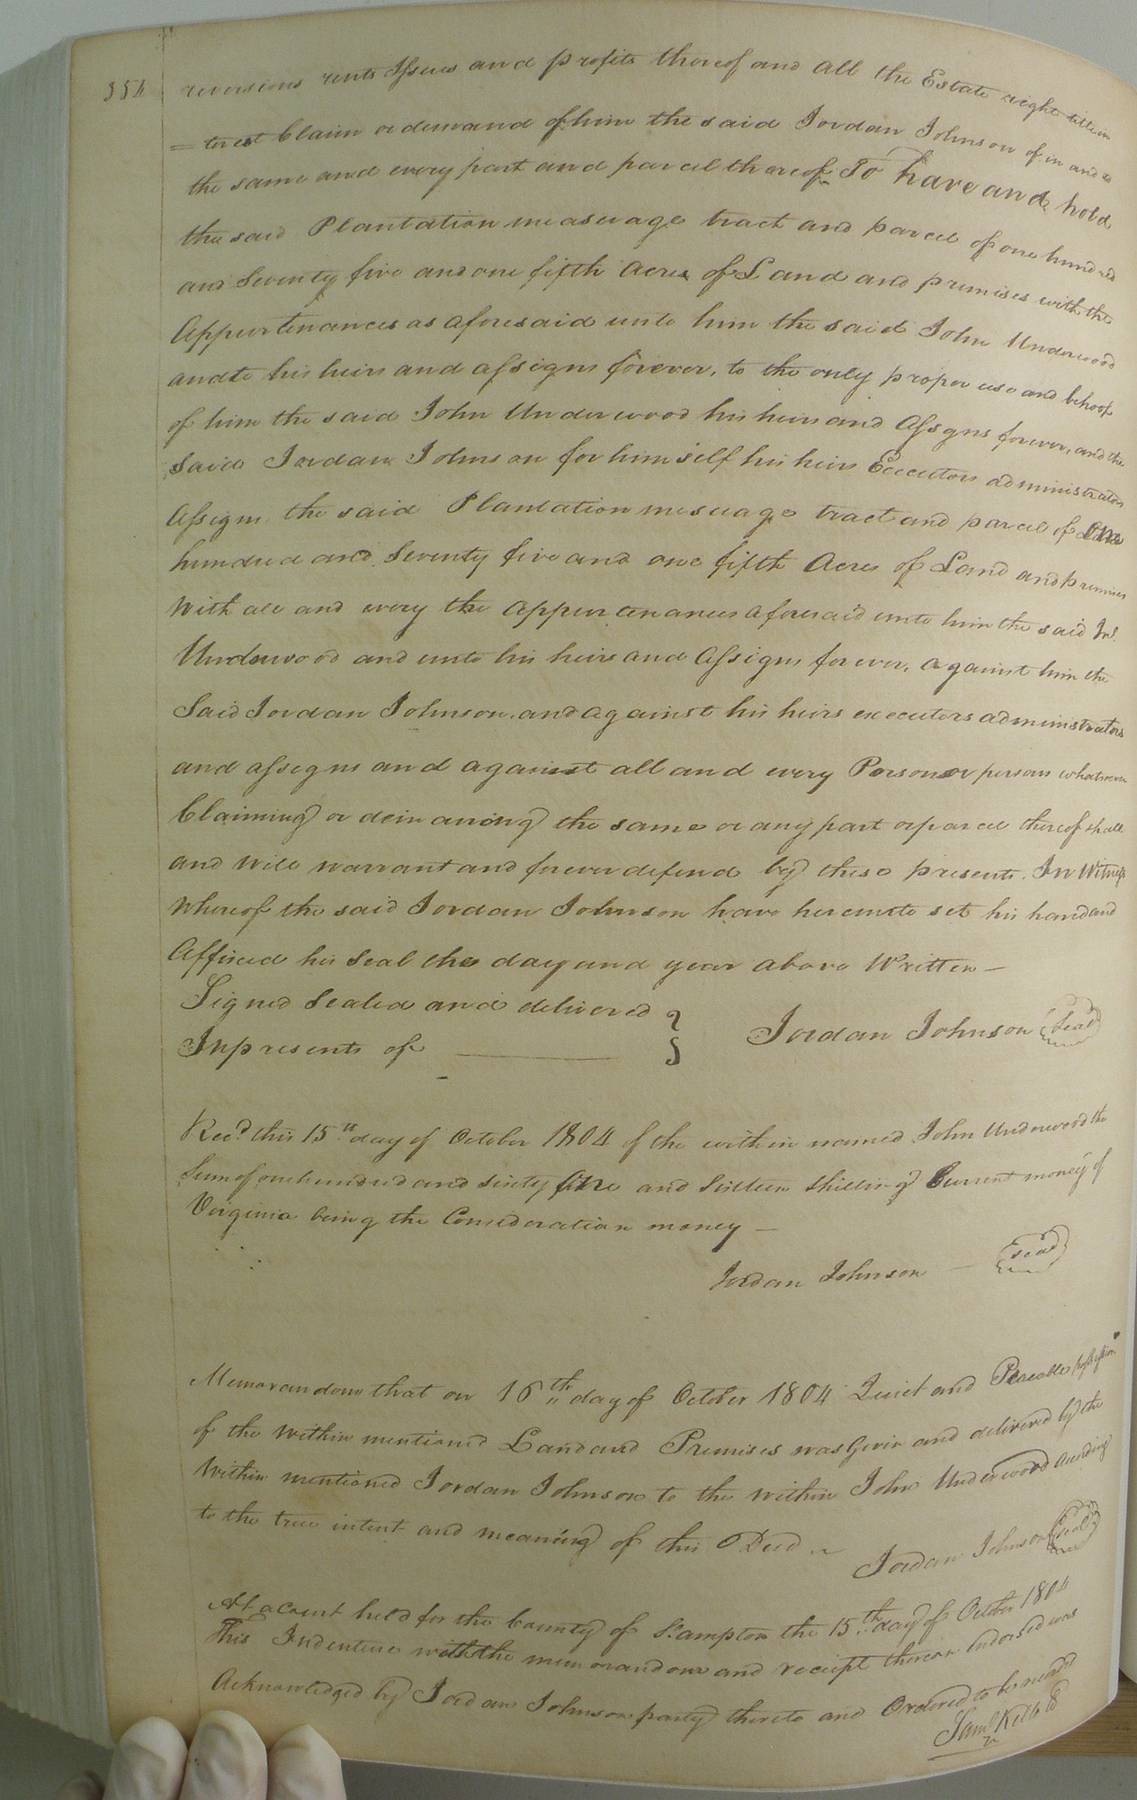 354
reversions rents Issues and profits thereof and all the Estate right title in
= terest Claim or demand of him the said Jordan Johnson of in and to
the same and every part and parcel thereof To have and hold
the said Plantation measuage tract and parcel of one hundred
and Seventy five and one fifth acres of Land and premises with the
Appurtenances as aforesaid unto him the said John Underwood
and to his heirs and assigns forever, to the only proper use and behoof
of him the said John Underwood his heirs and Assgns forever, and the
Said Jordan Johnson for himself his heirs Executors administrators
Assigns the said Plantation mesuage tract and parcel of One
hundred and Seventy five and one fifth Acres of Land and premises
With all and every the appurtenances aforesaid unto him the said Jno.
Underwood and unto his heirs and Assigns forever, against him the
Said Jordan Johnson, and against his heirs executors administrators
and assigns and against all and every Person or persons whatsoever
Claiming or demanding the same or any part or parcel thereof shall
and will warrant and forever defend by these presents. In Witness
Whereof the said Jordan Johnson have hereunto set his hand and
Affixed his Seal the day and year above Written —
Signed Sealed and delivered }
In presents of ———— Jordan Johnson (Seal)
Recd. this 15th day of October 1804 of the within named John Underwood the
Sum of one hundred and sixty five and Sixteen Shilling Current money of
Virginia being the Consideration money —
Jordan Johnson — (Seal)
Memorandom that on 16th day of October 1804 Quiet and Peaceable possession
of the Within mentioned Land and Premises was Given and delivered by the
Within mentioned Jordan Johnson to the Within John Underwood according
to the true intent and meaning of this Deed ~
Jordan Johnson (Seal)
At a Court held for the County of S:ampton the 15th day of October 1804
This Indenture with the memorandom and receipt thereon Endorsed was
Acknowledged by Jordan Johnson party thereto and Ordered to be record
Saml Kello